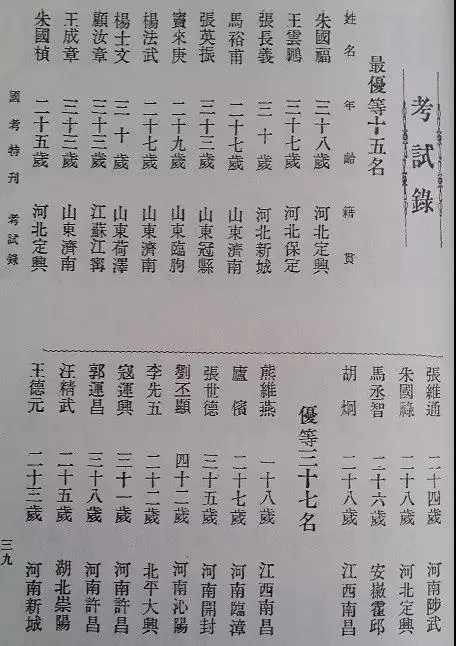 考試錄
最優等十五名
姓名 年齡 籍貫
朱國福 三十八歲 河北定興
王雲鵬 三十七歲 河北保定
張長義 三十歲 河北新城
馬裕甫 二十七歲 山東濟南
張英振 三十三歲 山東冠縣
竇來庚 二十九歲 山東臨朐
楊法武 二十七歲 山東濟南
楊士文 三十歲 山東荷澤
顧汝章 三十三歲 江蘇江寗
王成章 三十三歲 山東濟南
朱國楨 二十五歲 河北定興
張維通 二十四歲 河南陟武
朱國祿 二十八歲 河北定興
馬丞智 二十六歲 安徽霍邱
胡炯 二十八歲 江西南昌
優等三十七名
熊維燕 一十八歲 江西南昌
盧儐 二十七歲 河南臨漳
張世德 三十五歲 河南開封
劉丕顯 四十二歲 河南沁陽
李先五 二十二歲 北平大興
寇運興 三十一歲 河南許昌
郭運昌 三十八歲 河南許昌
汪精武 二十五歲 湖北崇陽
王德元 二十三歲 河南新城
國考特刊 考試錄
三九